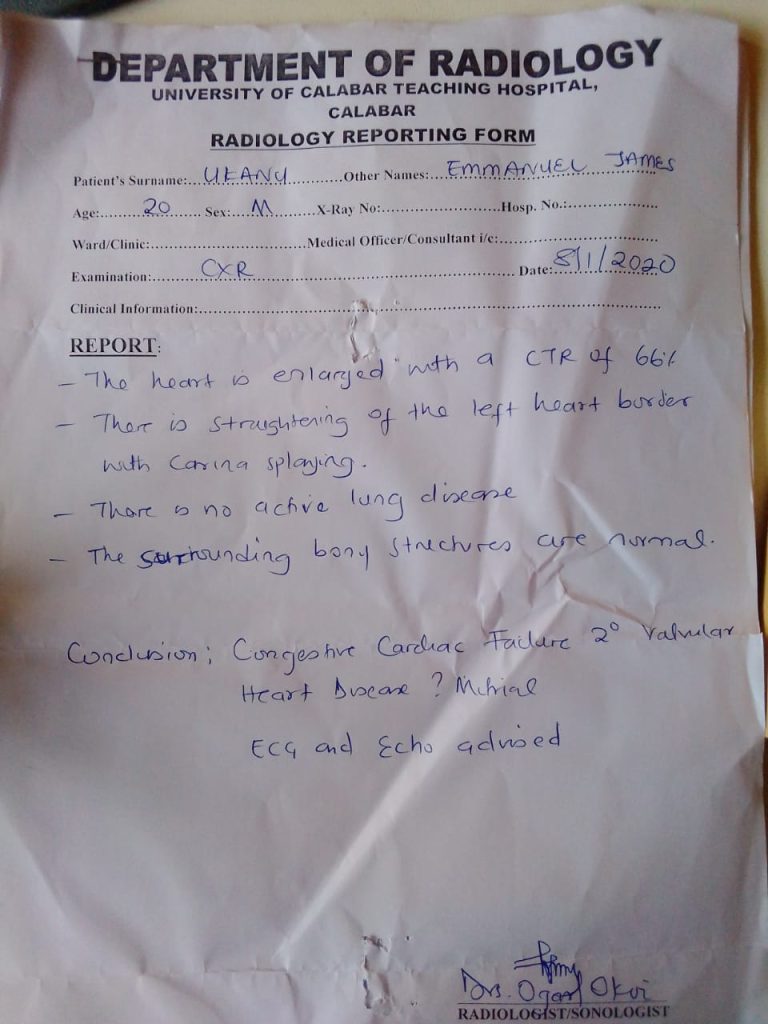 DEPARTMENT OF RADIOLOGY
UNIVERSITY OF CALABAR TEACHING HOSPITAL,
CALABAR
RADIOLOGY REPORTING FORM
Patient's Surname:... UKANU ...Other Names:... EMMANUEL JAMES
Age:... 20 ...Sex:... M ...X-Ray No:...Hosp. No.:...
Ward/Clinic:...Medical Officer/Consultant i/c:...
Examination:... CXR ...Date:... 8/1/2020
Clinical Information:...
REPORT:
- The heart is enlarged with a CTR of 66%
- There is straightening of the left heart border
with Carina splaying.
- There is no active lung disease
- The surrounding bony structures are normal.
Conclusion; Congestive Cardiac Failure 2° Valvular
Heart Disease ? Mitrial
ECG and Echo advised
Drs. Ogar Okoi
RADIOLOGIST/SONOLOGIST